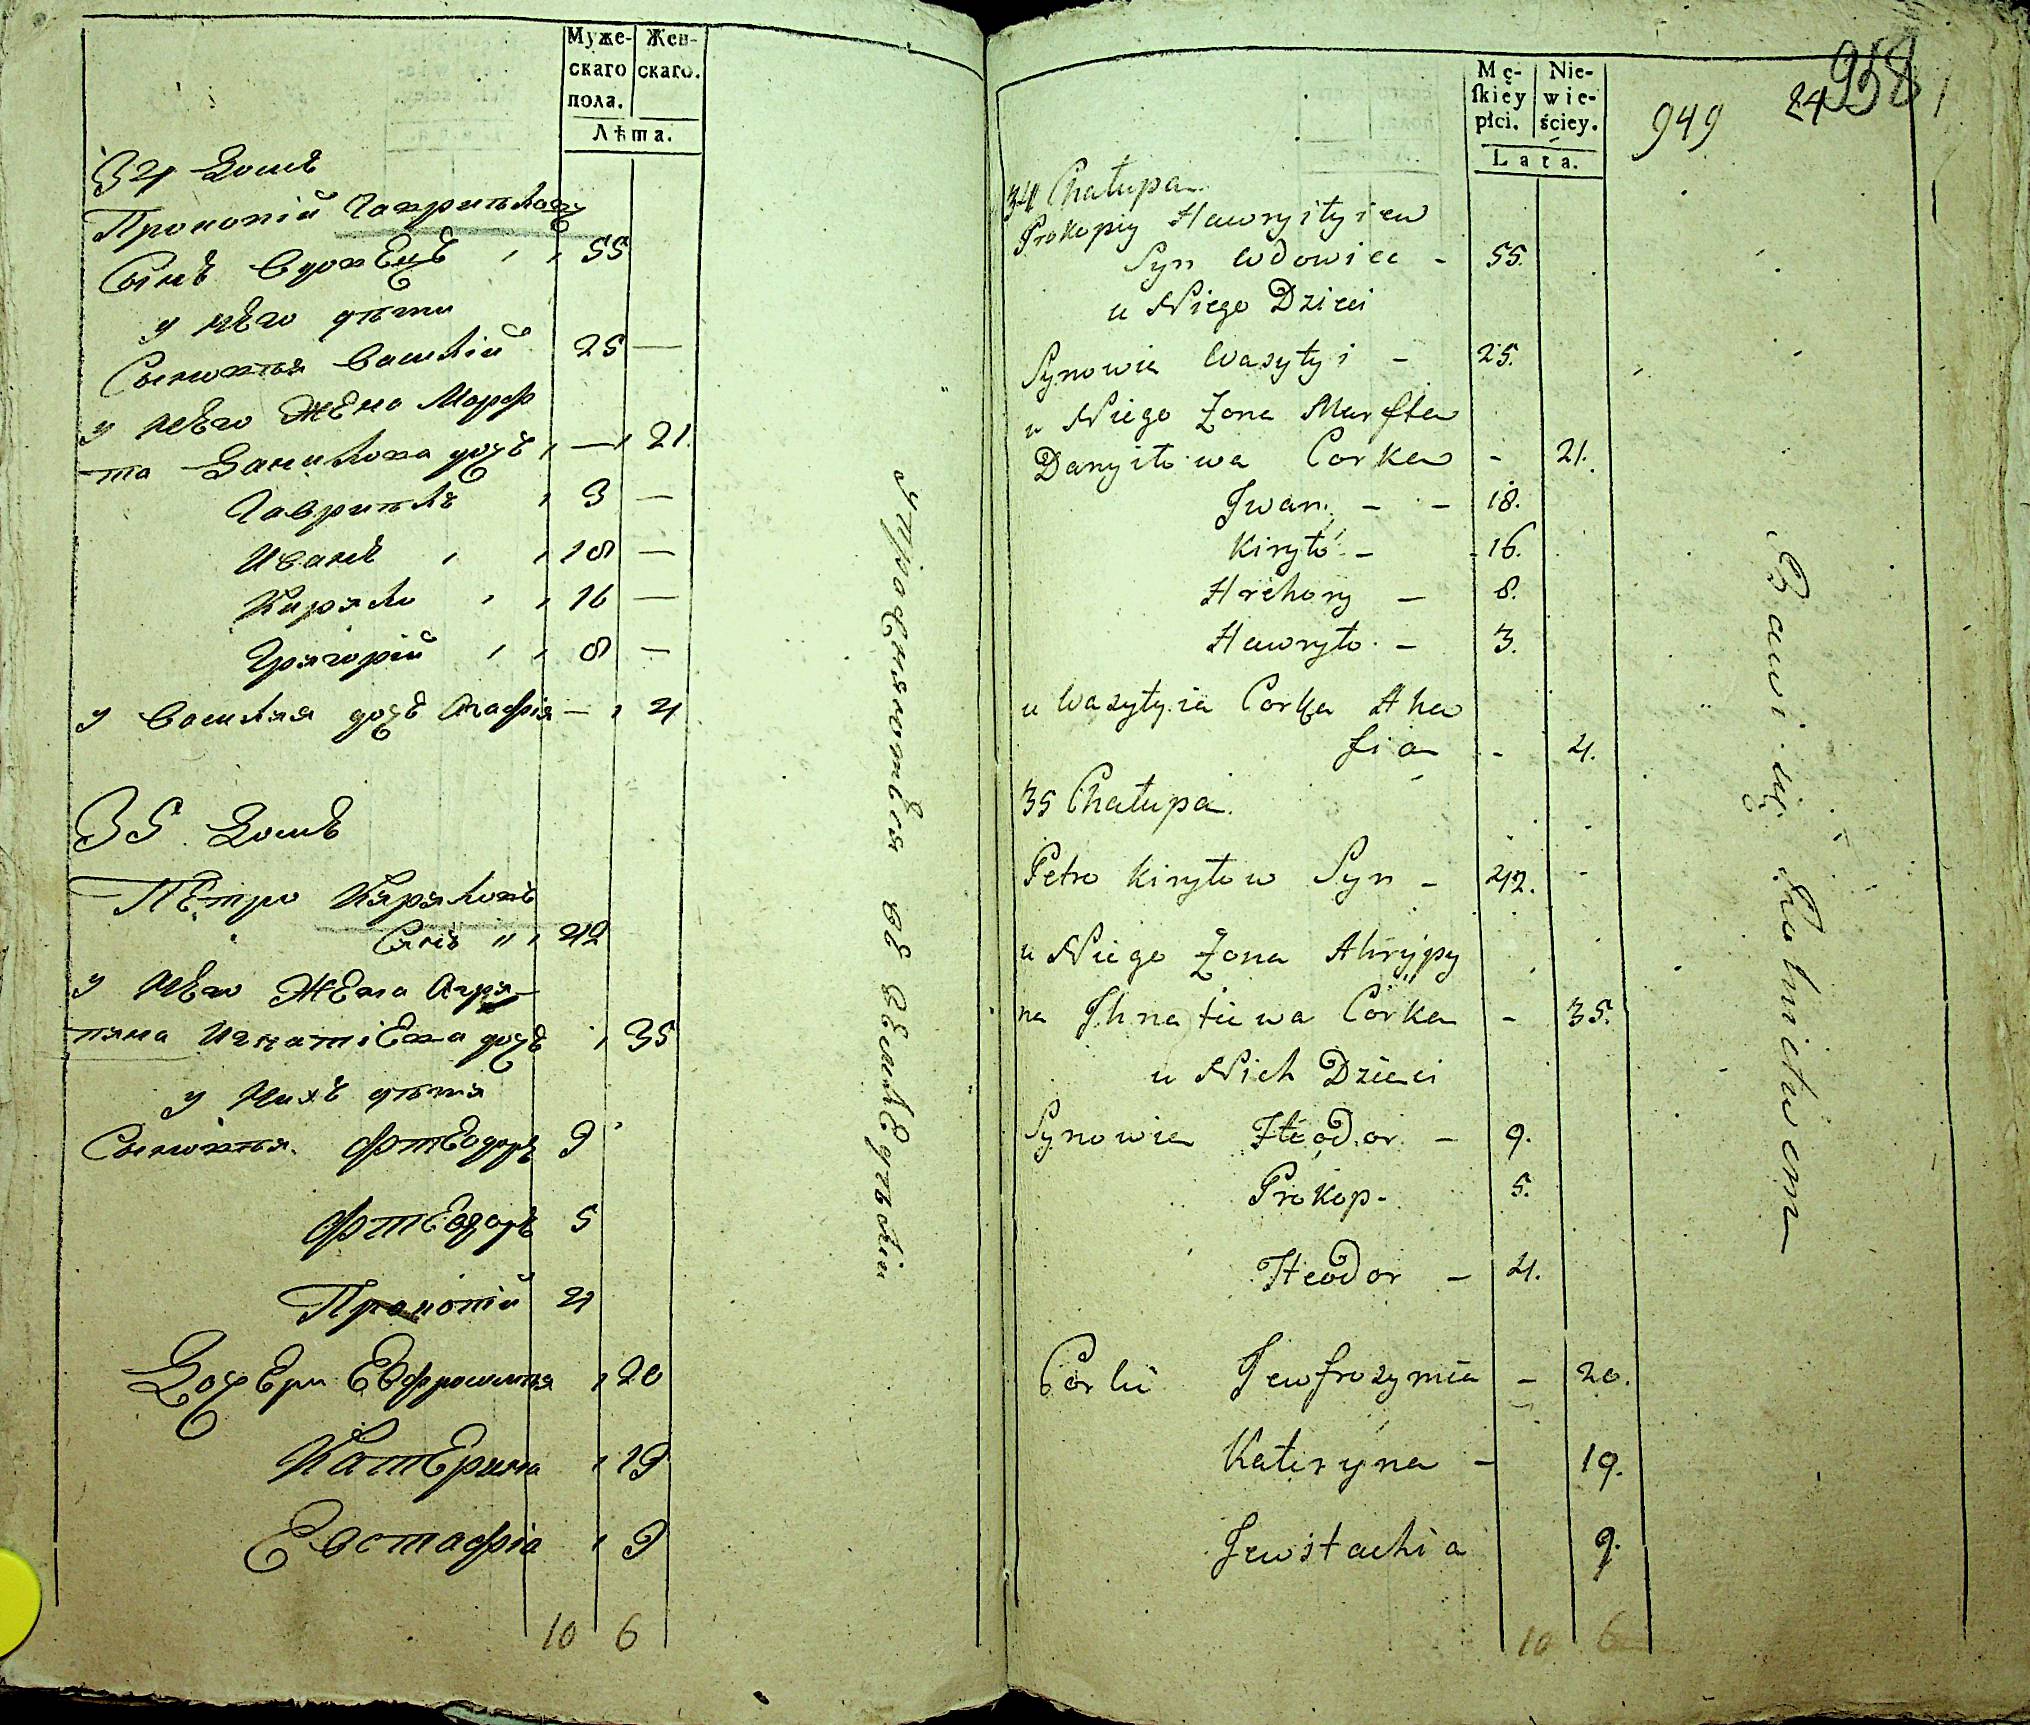 Муже-
скаго
пола.
Жен-
скаго.
Лѣта.
34 Домъ
Прокопій Гаврииловъ
Сынъ вдовецъ 55
у него дѣти
Сыновья Василій 25 —
у него Жена Марф
та Данилова дочь — 21.
Гавриилъ 3 —
Иванъ 18 —
Кирило 16 —
Григорій 8 —
у Василія дочь Агафія — 4
35 Домъ
Петро Кириловъ
Синъ 42
у него Жена Агри-
пина Игнатіева дочь 35
у нихъ дѣти
Сыновья. Фтеодоръ 9
Фтеодоръ 5
Прокопій 4
Дочери Евфросинія 20
Катерина 19
Евстафія 9
10 6
упражняютъся въ земледѣліи
Mę-
ſkiey
płci.
Nie-
wie-
ściey.
Lata.
949
24
958
34 Chałupa
Prokopiy Hawryiłyiew
Syn Wdowiec - 55.
u Niego Dzieci
Synowie Wasyłyi - 25.
u Niego Żona Marfta
Danyiłowa Corka - 21.
Jwan - - 18.
Kiryło - 16.
Hrehory - 8.
Hawryło - 3.
u Wasyłyia Corka Aha
fia - 4.
35 Chałupa.
Petro Kiryłow Syn - 42.
u Niego Żona Ahrypy
na Jhnatiewa Córka - 35.
u Nich Dzieci
Synowie Fteodor - 9.
Prokop - 5.
Fteodor - 4.
Corki Jewfrozynia - 20.
Kateryna - 19.
Jewstachia 9.
10 6
Bawi się Rolnictwem